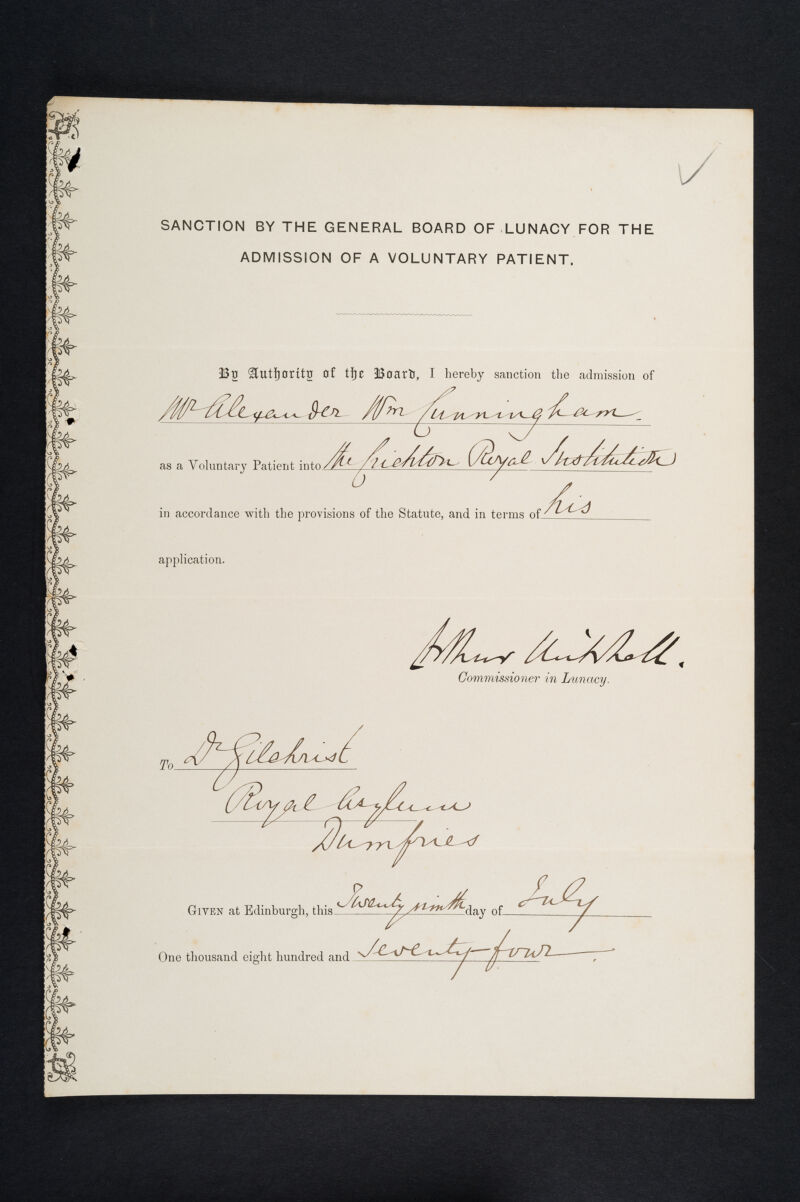 SANCTION BY THE GENERAL BOARD OF LUNACY FOR THE
ADMISSION OF A VOLUNTARY PATIENT.
By Authority of the Board, I hereby sanction the admission of
Mr Alexander Wm Cunningham.
as a Voluntary Patient into the Crichton Royal Institution
in accordance with the provisions of the Statute, and in terms of his
application.
Arthur Mitchell.
Commissioner in Lunacy.
To Dr Gilchrist
Royal Asylum
Dumfries
GIVEN at Edinburgh, this Twenty ninth day of July
One thousand eight hundred and Seventy four